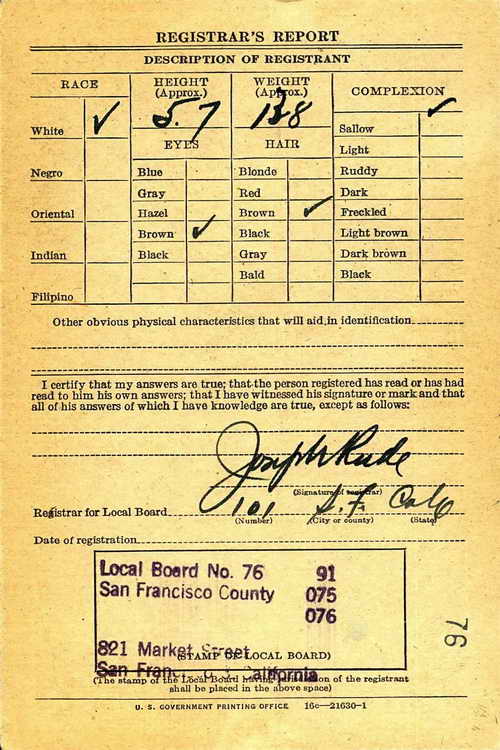 REGISTRAR'S REPORT
DESCRIPTION OF REGISTRANT
RACE
HEIGHT (Approx.)
WEIGHT (Approx.)
COMPLEXION
5.7
138
White ✓
✓
Sallow
EYES
HAIR
Light
Negro
Blue
Blonde
Ruddy
Gray
Red
Dark
Oriental
Hazel
Brown ✓
Freckled
Brown ✓
Black
Light brown
Indian
Black
Gray
Dark brown
Bald
Black
Filipino
Other obvious physical characteristics that will aid in identification
I certify that my answers are true; that the person registered has read or has had
read to him his own answers; that I have witnessed his signature or mark and that
all of his answers of which I have knowledge are true, except as follows:
Joseph Rude
(Signature of registrar)
Registrar for Local Board 101 S.F. Calif
(Number) (City or county) (State)
Date of registration
Local Board No. 76 91
San Francisco County 075
076
821 Market Street
(STAMP OF LOCAL BOARD)
San Francisco, California
(The stamp of the Local Board having jurisdiction of the registrant
shall be placed in the above space)
U. S. GOVERNMENT PRINTING OFFICE 16c—21630-1
76